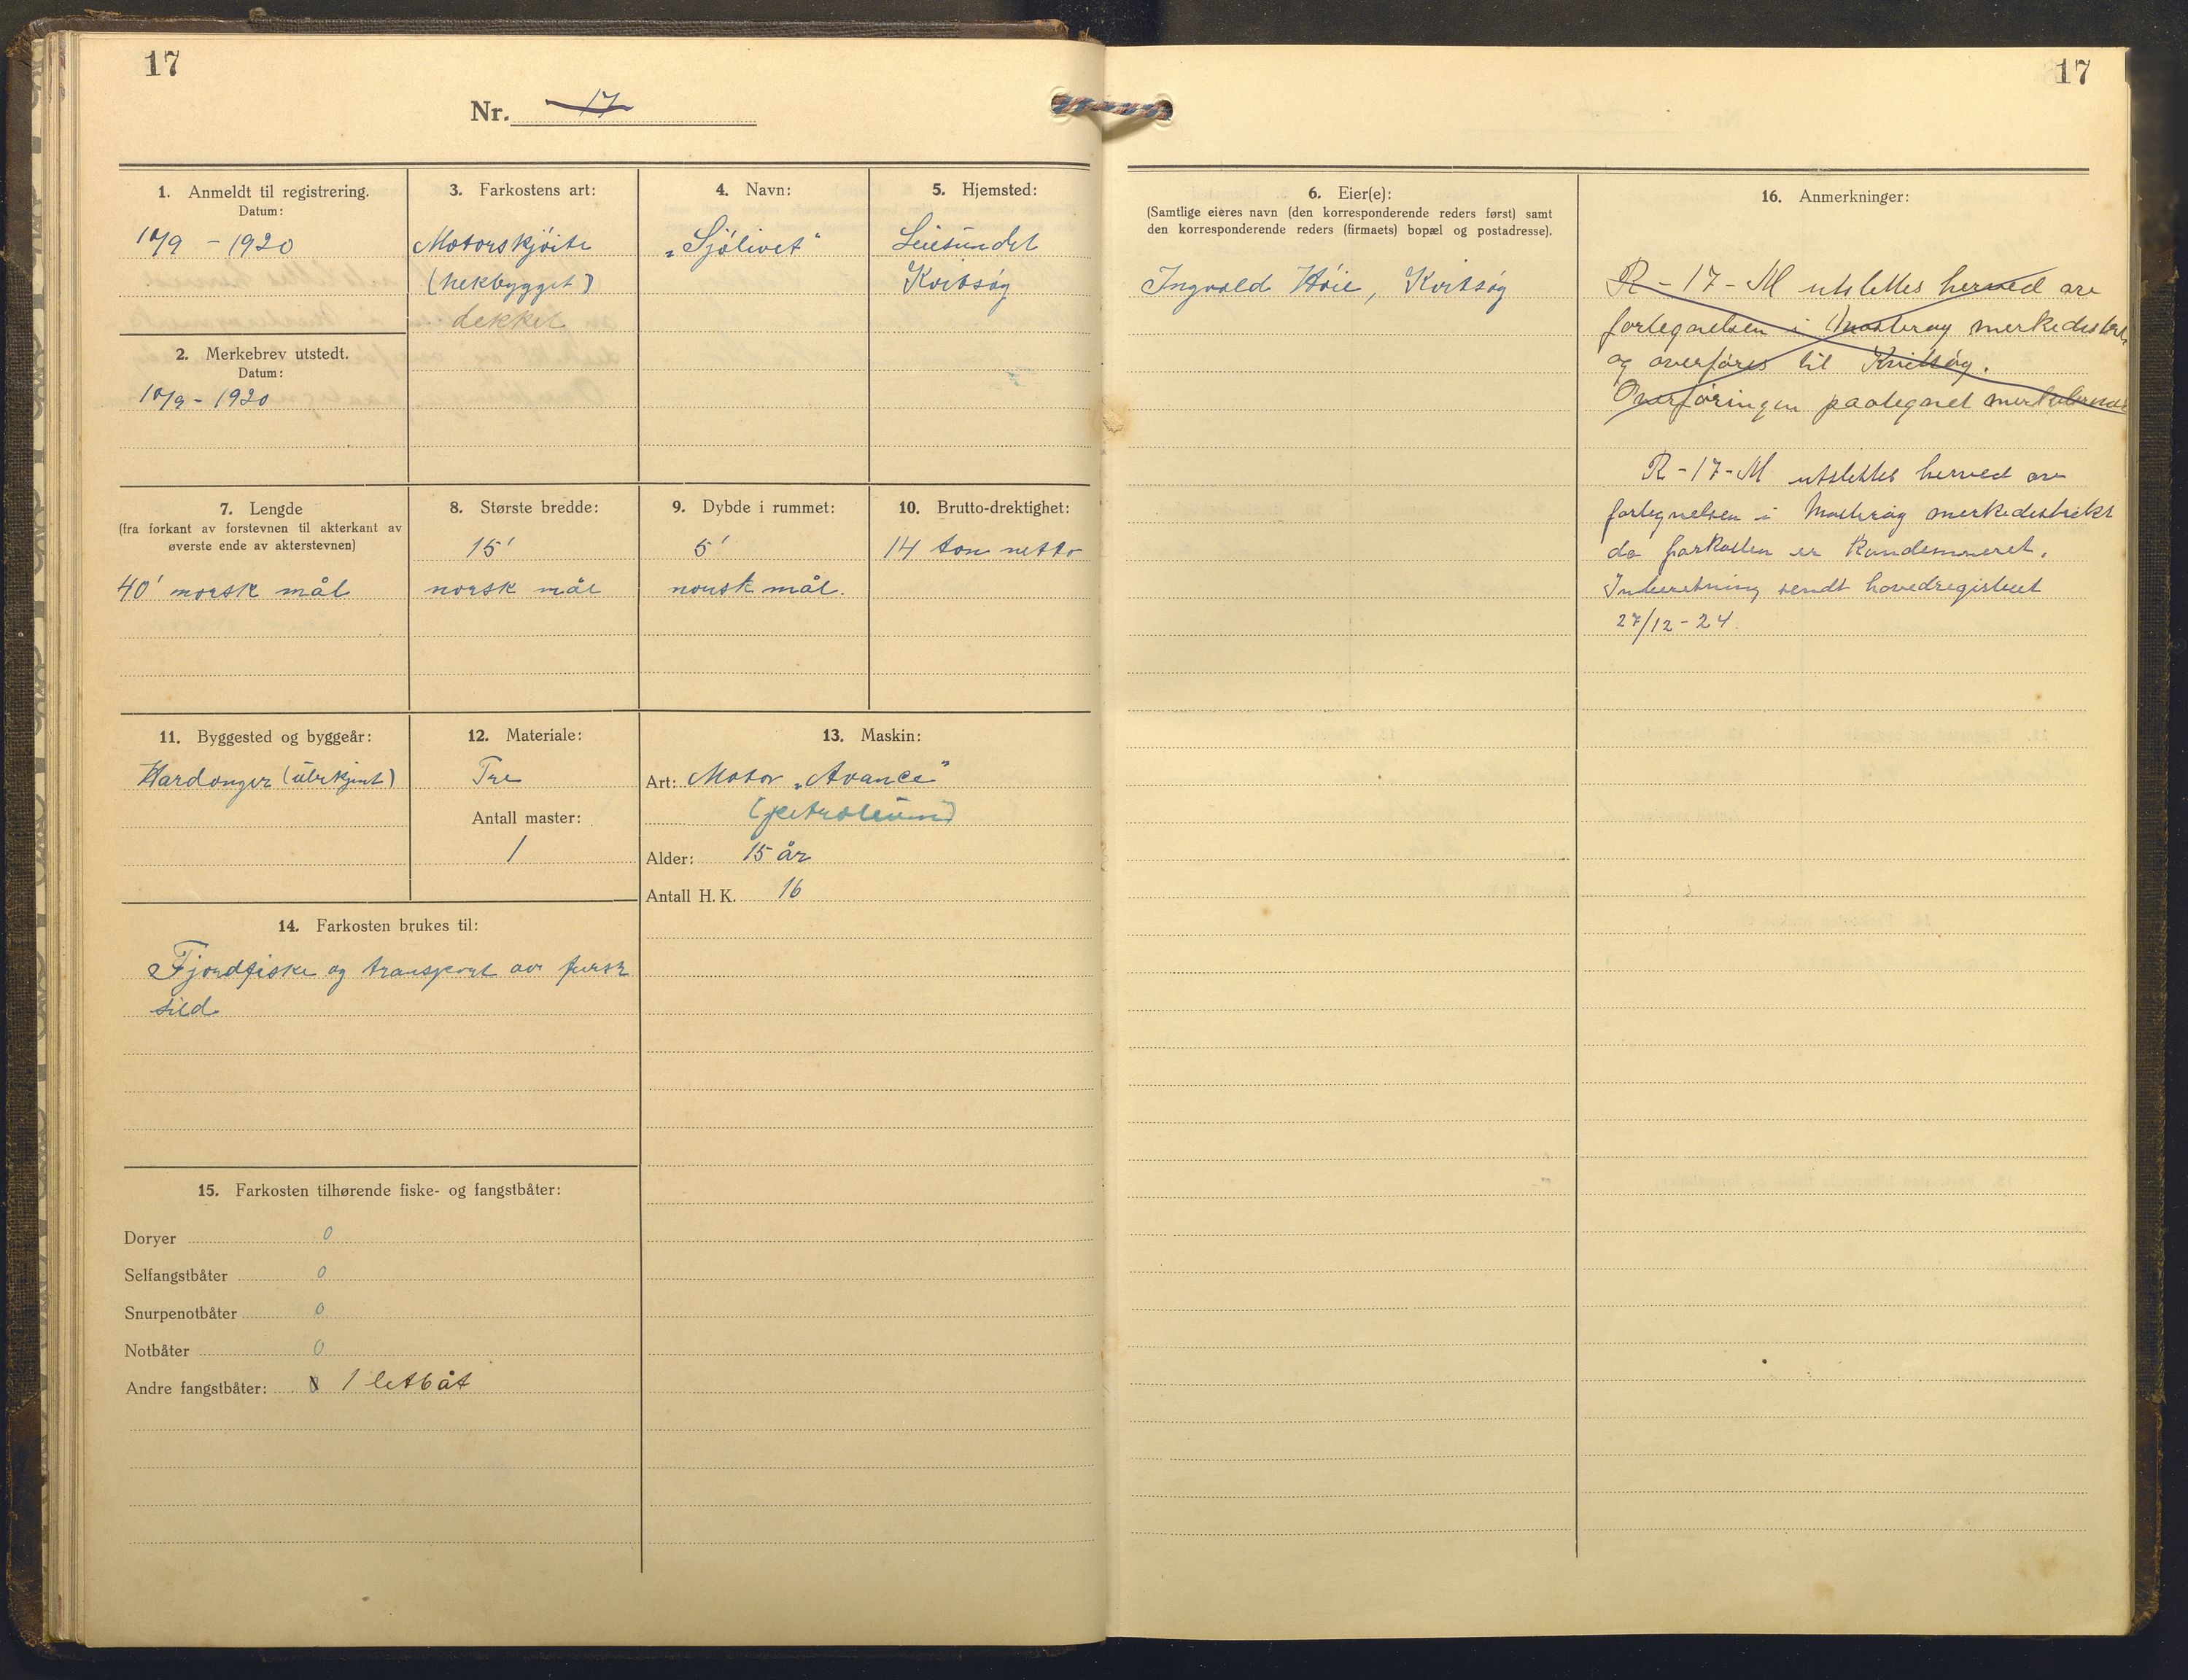 17
Nr. 17
1. Anmeldt til registrering.
Datum:
10/9 - 1920
2. Merkebrev utstedt.
Datum:
10/9 - 1920
3. Farkostens art:
Motorskjöite
(hekbygget)
dekket
4. Navn:
„Sjölivet“
5. Hjemsted:
Leiesundet
Kvitsöy
7. Lengde
(fra forkant av forstevnen til akterkant av
øverste ende av akterstevnen)
40' norsk mål
8. Største bredde:
15'
norsk mål
9. Dybde i rummet:
5'
norsk mål.
10. Brutto-drektighet:
14 ton netto
11. Byggested og byggeår:
Hardanger (ubekjent)
12. Materiale:
Tre
Antall master:
1
13. Maskin:
Art: Motor „Avance“
(petroleum)
Alder: 15 år
Antall H. K. 16
14. Farkosten brukes til:
Fjordfiske og transport av fersk
sild
15. Farkosten tilhørende fiske- og fangstbåter:
Doryer 0
Selfangstbåter 0
Snurpenotbåter 0
Notbåter 0
Andre fangstbåter: 0 1 letbåt
17
6. Eier(e):
(Samtlige eieres navn (den korresponderende reders først) samt
den korresponderende reders (firmaets) bopæl og postadresse).
Ingvald Höie, Kvitsöy
16. Anmerkninger:
R - 17 - M utslettes herved av
fortegnelsen i Mosterøy merkedistrikt
og overføres til Kvitsøy.
Overføringen paategnet merkebrevet
R - 17 - M utslettes herved av
fortegnelsen i Mosterøy merkedistrikt
da farkosten er kondemneret.
Inberetning sendt hovedregistret
27/12 - 24.